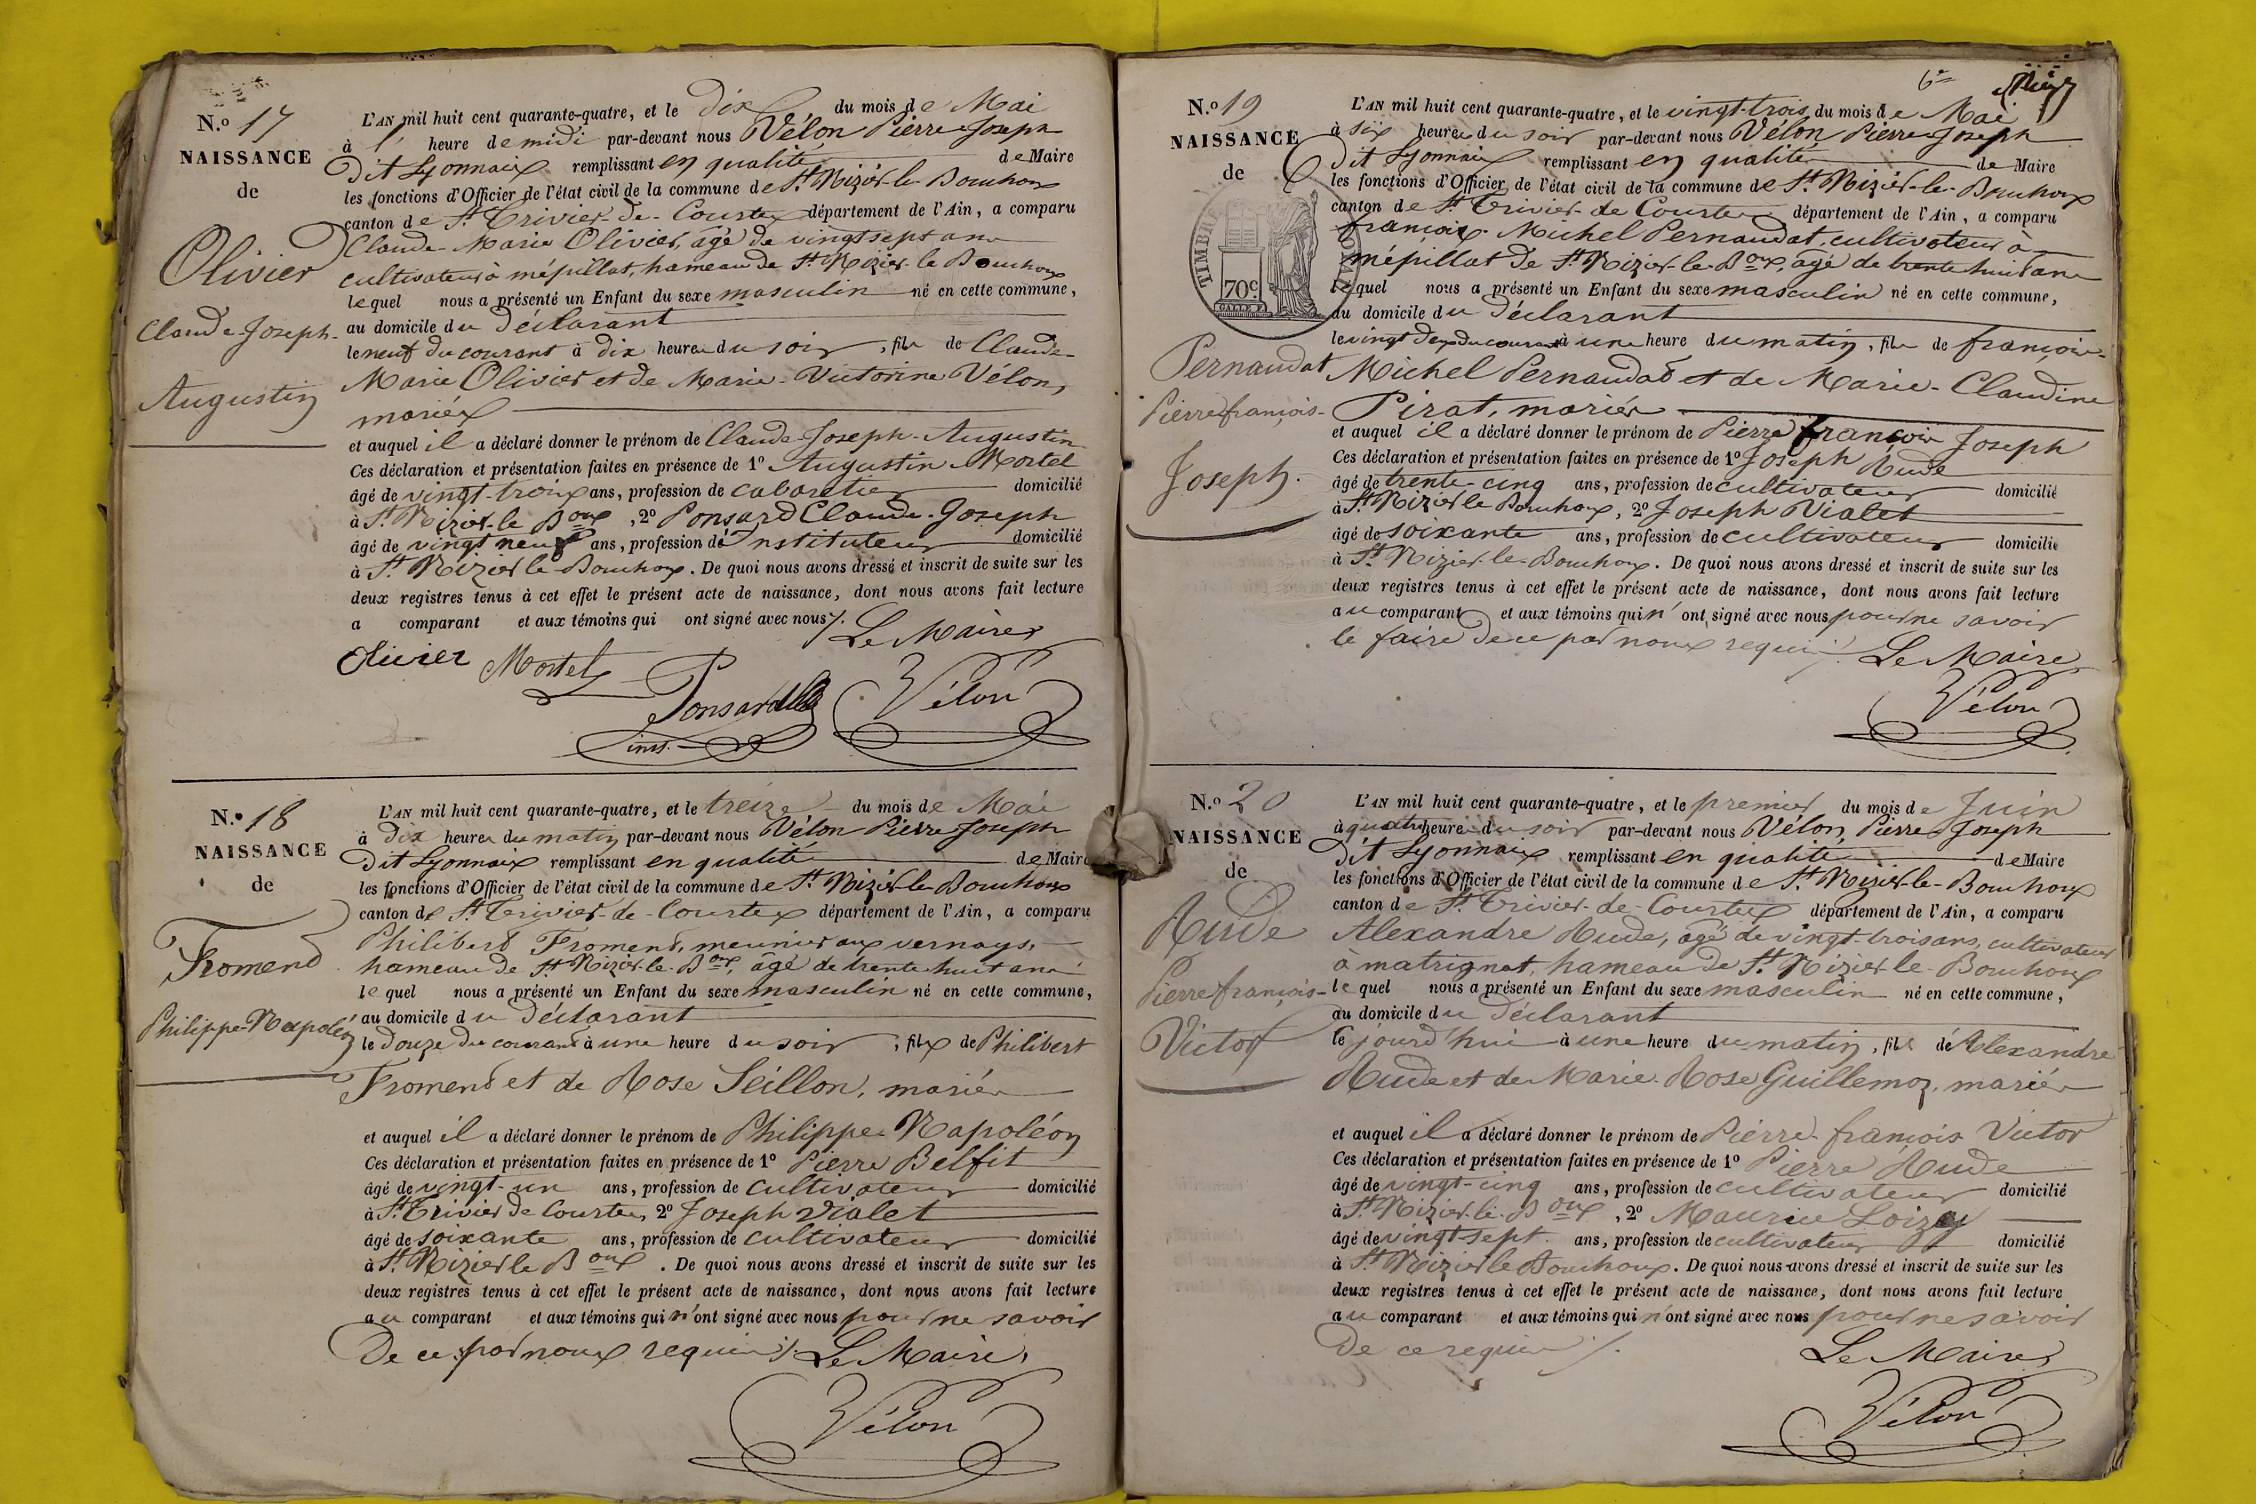 N.º 17
NAISSANCE
de
Olivier
Claude-Joseph-
Augustin
L'AN mil huit cent quarante-quatre, et le dix du mois de Mai
à 1 heure de midi par-devant nous Vélon Pierre Joseph
dit Lyonnais remplissant en qualité de Maire
les fonctions d'Officier de l'état civil de la commune de St. Nizier-le-Bouchoux
canton de St. Trivier-de-Courtes département de l'Ain, a comparu
Claude-Marie Olivier, âgé de vingt sept ans
cultivateur à mépillat, hameau de St. Nizier-le-Bouchoux
lequel nous a présenté un Enfant du sexe masculin né en cette commune,
au domicile du déclarant
le neuf du courant à dix heures du soir, fils de Claude-
Marie Olivier et de Marie-Victorine Vélon,
mariés
et auquel il a déclaré donner le prénom de Claude-Joseph-Augustin
Ces déclaration et présentation faites en présence de 1º Augustin Mortel
âgé de vingt-trois ans, profession de cabaretier domicilié
à St. Nizier-le Boux, 2º Ponsard Claude-Joseph
âgé de vingt neuf ans, profession d'Instituteur domicilié
à St. Nizier le Bouchoux. De quoi nous avons dressé et inscrit de suite sur les
deux registres tenus à cet effet le présent acte de naissance, dont nous avons fait lecture
a comparant et aux témoins qui ont signé avec nous /.
Le Maire
Olivier Mortel
Ponsard
inst.
Vélon
N.º 18
NAISSANCE
de
Froment
Philippe-Napoléon
L'AN mil huit cent quarante-quatre, et le treize du mois de Mai
à dix heures du matin par-devant nous Vélon Pierre Joseph
dit Lyonnais remplissant en qualité de Maire
les fonctions d'Officier de l'état civil de la commune de St. Nizier-le-Bouchoux
canton de St. Trivier-de-Courtes département de l'Ain, a comparu
Philibert Froment, meunier aux vernays,
hameau de St. Nizier-le-Boux, âgé de trente huit ans
lequel nous a présenté un Enfant du sexe masculin né en cette commune,
au domicile du déclarant
le douze du courant à une heure du soir, fils de Philibert
Froment et de Rose Seillon, mariés
et auquel il a déclaré donner le prénom de Philippe-Napoléon
Ces déclaration et présentation faites en présence de 1º Pierre Belfit
âgé de vingt-un ans, profession de cultivateur domicilié
à St. Trivier de Courtes, 2º Joseph Vialet
âgé de soixante ans, profession de cultivateur domicilié
à St. Nizier le Boux. De quoi nous avons dressé et inscrit de suite sur les
deux registres tenus à cet effet le présent acte de naissance, dont nous avons fait lecture
au comparant et aux témoins qui n'ont signé avec nous pour ne savoir
de ce par nous requis /. Le Maire,
Vélon
6e
N.º 19
NAISSANCE
de
TIMBRE
70c.
Pernaudat
Pierre françois-
Joseph.
L'AN mil huit cent quarante-quatre, et le vingt-trois du mois de Mai
à six heures du soir par-devant nous Vélon Pierre Joseph
dit Lyonnais remplissant en qualité de Maire
les fonctions d'Officier de l'état civil de la commune de St. Nizier-le-Bouchoux
canton de St. Trivier-de Courtes département de l'Ain, a comparu
françois-Michel Pernaudat, cultivateur à
mépillat de St. Nizier-le-Boux, âgé de trente huit ans
lequel nous a présenté un Enfant du sexe masculin né en cette commune,
au domicile du déclarant
le vingt deux du courant à une heure du matin, fils de françois-
Michel Pernaudat et de Marie-Claudine
Pirat, mariés
et auquel il a déclaré donner le prénom de Pierre françois Joseph
Ces déclaration et présentation faites en présence de 1º Joseph Rude
âgé de trente-cinq ans, profession de cultivateur domicilié
à St. Nizier le Bouchoux, 2º Joseph Vialet
âgé de soixante ans, profession de cultivateur domicilié
à St. Nizier-le-Bouchoux. De quoi nous avons dressé et inscrit de suite sur les
deux registres tenus à cet effet le présent acte de naissance, dont nous avons fait lecture
au comparant et aux témoins qui n'ont signé avec nous pour ne savoir
le faire de ce par nous requis /. Le Maire
Vélon
N.º 20
NAISSANCE
de
Rude
Pierre françois-
Victor
L'AN mil huit cent quarante-quatre, et le premier du mois de Juin
à quatre heures du soir par-devant nous Vélon Pierre Joseph
dit Lyonnais remplissant en qualité de Maire
les fonctions d'Officier de l'état civil de la commune de St. Nizier-le-Bouchoux
canton de St. Trivier-de-Courtes département de l'Ain, a comparu
Alexandre Rude, âgé de vingt-trois ans, cultivateur
à matrignat, hameau de St. Nizier-le-Bouchoux
lequel nous a présenté un Enfant du sexe masculin né en cette commune,
au domicile du déclarant
le jourd'hui à une heure du matin, fils de Alexandre
Rude et de Marie-Rose Guillemoz, mariés
et auquel il a déclaré donner le prénom de Pierre-françois Victor
Ces déclaration et présentation faites en présence de 1º Pierre Rude
âgé de vingt-cinq ans, profession de cultivateur domicilié
à St. Nizier-le-Boux, 2º Maurice Loizy
âgé de vingt sept ans, profession de cultivateur domicilié
à St. Nizier le Bouchoux. De quoi nous avons dressé et inscrit de suite sur les
deux registres tenus à cet effet le présent acte de naissance, dont nous avons fait lecture
au comparant et aux témoins qui n'ont signé avec nous pour ne savoir
de ce requis /. Le Maire
Vélon